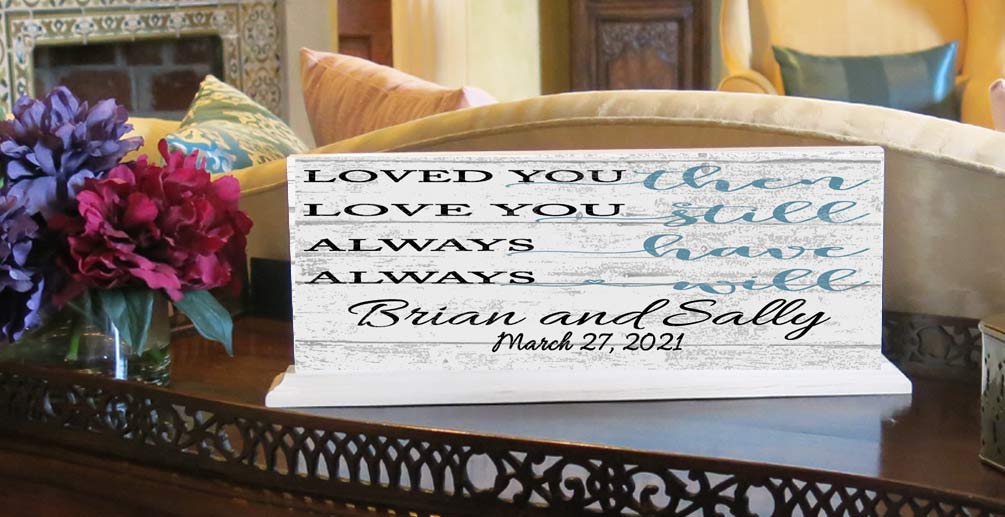 LOVED YOU then
LOVE YOU still
ALWAYS have
ALWAYS will
Brian and Sally
March 27, 2021